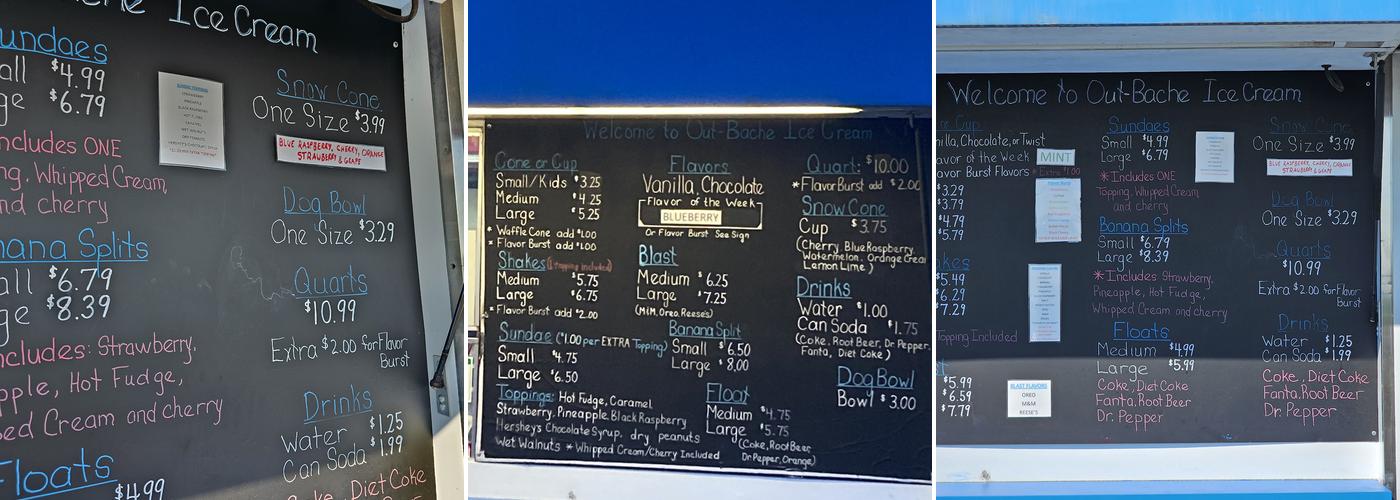 che Ice Cream
undaes
all $4.99
ge $6.79
ncludes ONE
ng, Whipped Cream
nd cherry
nana Splits
all $6.79
ge $8.39
ncludes: Strawberry,
apple, Hot Fudge,
ped Cream and cherry
Floats
$4.99
Snow Cone
One Size $3.99
BLUE RASPBERRY, CHERRY, ORANGE
STRAWBERRY & GRAPE
Dog Bowl
One Size $3.29
Quarts
$10.99
Extra $2.00 for Flavor
Burst
Drinks
Water $1.25
Can Soda $1.99
Coke, Diet Coke
Welcome to Out-Bache Ice Cream
Cone or Cup
Small/Kids $3.25
Medium $4.25
Large $5.25
* Waffle Cone add $1.00
* Flavor Burst add $1.00
Shakes (1 topping included)
Medium $5.75
Large $6.75
* Flavor Burst add $2.00
Sundae ($1.00 per EXTRA Topping)
Small $4.75
Large $6.50
Toppings: Hot Fudge, Caramel,
Strawberry, Pineapple, Black Raspberry
Hershey's Chocolate Syrup, dry peanuts
Wet Walnuts * Whipped Cream/Cherry Included
Flavors
Vanilla, Chocolate
Flavor of the Week
BLUEBERRY
Or Flavor Burst See Sign
Blast
Medium $6.25
Large $7.25
(M&M, Oreo, Reese's)
Banana Split
Small $6.50
Large $8.00
Float
Medium $4.75
Large $5.75
(Coke, Root Beer,
Dr Pepper, Orange)
Quart: $10.00
* Flavor Burst add $2.00
Snow Cone
Cup $3.75
(Cherry, Blue Raspberry,
Watermelon, Orange Crea
Lemon Lime)
Drinks
Water $1.00
Can Soda $1.75
(Coke, Root Beer, Dr. Pepper,
Fanta, Diet Coke)
Dog Bowl
Bowl $3.00
Welcome to Out-Bache Ice Cream
or Cup
nilla, Chocolate, or Twist
avor of the Week MINT
avor Burst Flavors * Extra $1.00
$3.29
$3.79
$4.79
$5.79
kes
$5.49
$6.29
$7.29
Topping Included
$5.99
$6.59
$7.79
BLAST FLAVORS
OREO
M&M
REESE'S
Sundaes
Small $4.99
Large $6.79
* Includes ONE
Topping, Whipped Cream
and cherry
Banana Splits
Small $6.79
Large $8.39
* Includes: Strawberry,
Pineapple, Hot Fudge,
Whipped Cream and cherry
Floats
Medium $4.99
Large $5.99
Coke, Diet Coke
Fanta, Root Beer
Dr. Pepper
Snow Cone
One Size $3.99
BLUE RASPBERRY, CHERRY, ORANGE
STRAWBERRY & GRAPE
Dog Bowl
One Size $3.29
Quarts
$10.99
Extra $2.00 for Flavor
Burst
Drinks
Water $1.25
Can Soda $1.99
Coke, Diet Coke
Fanta, Root Beer
Dr. Pepper